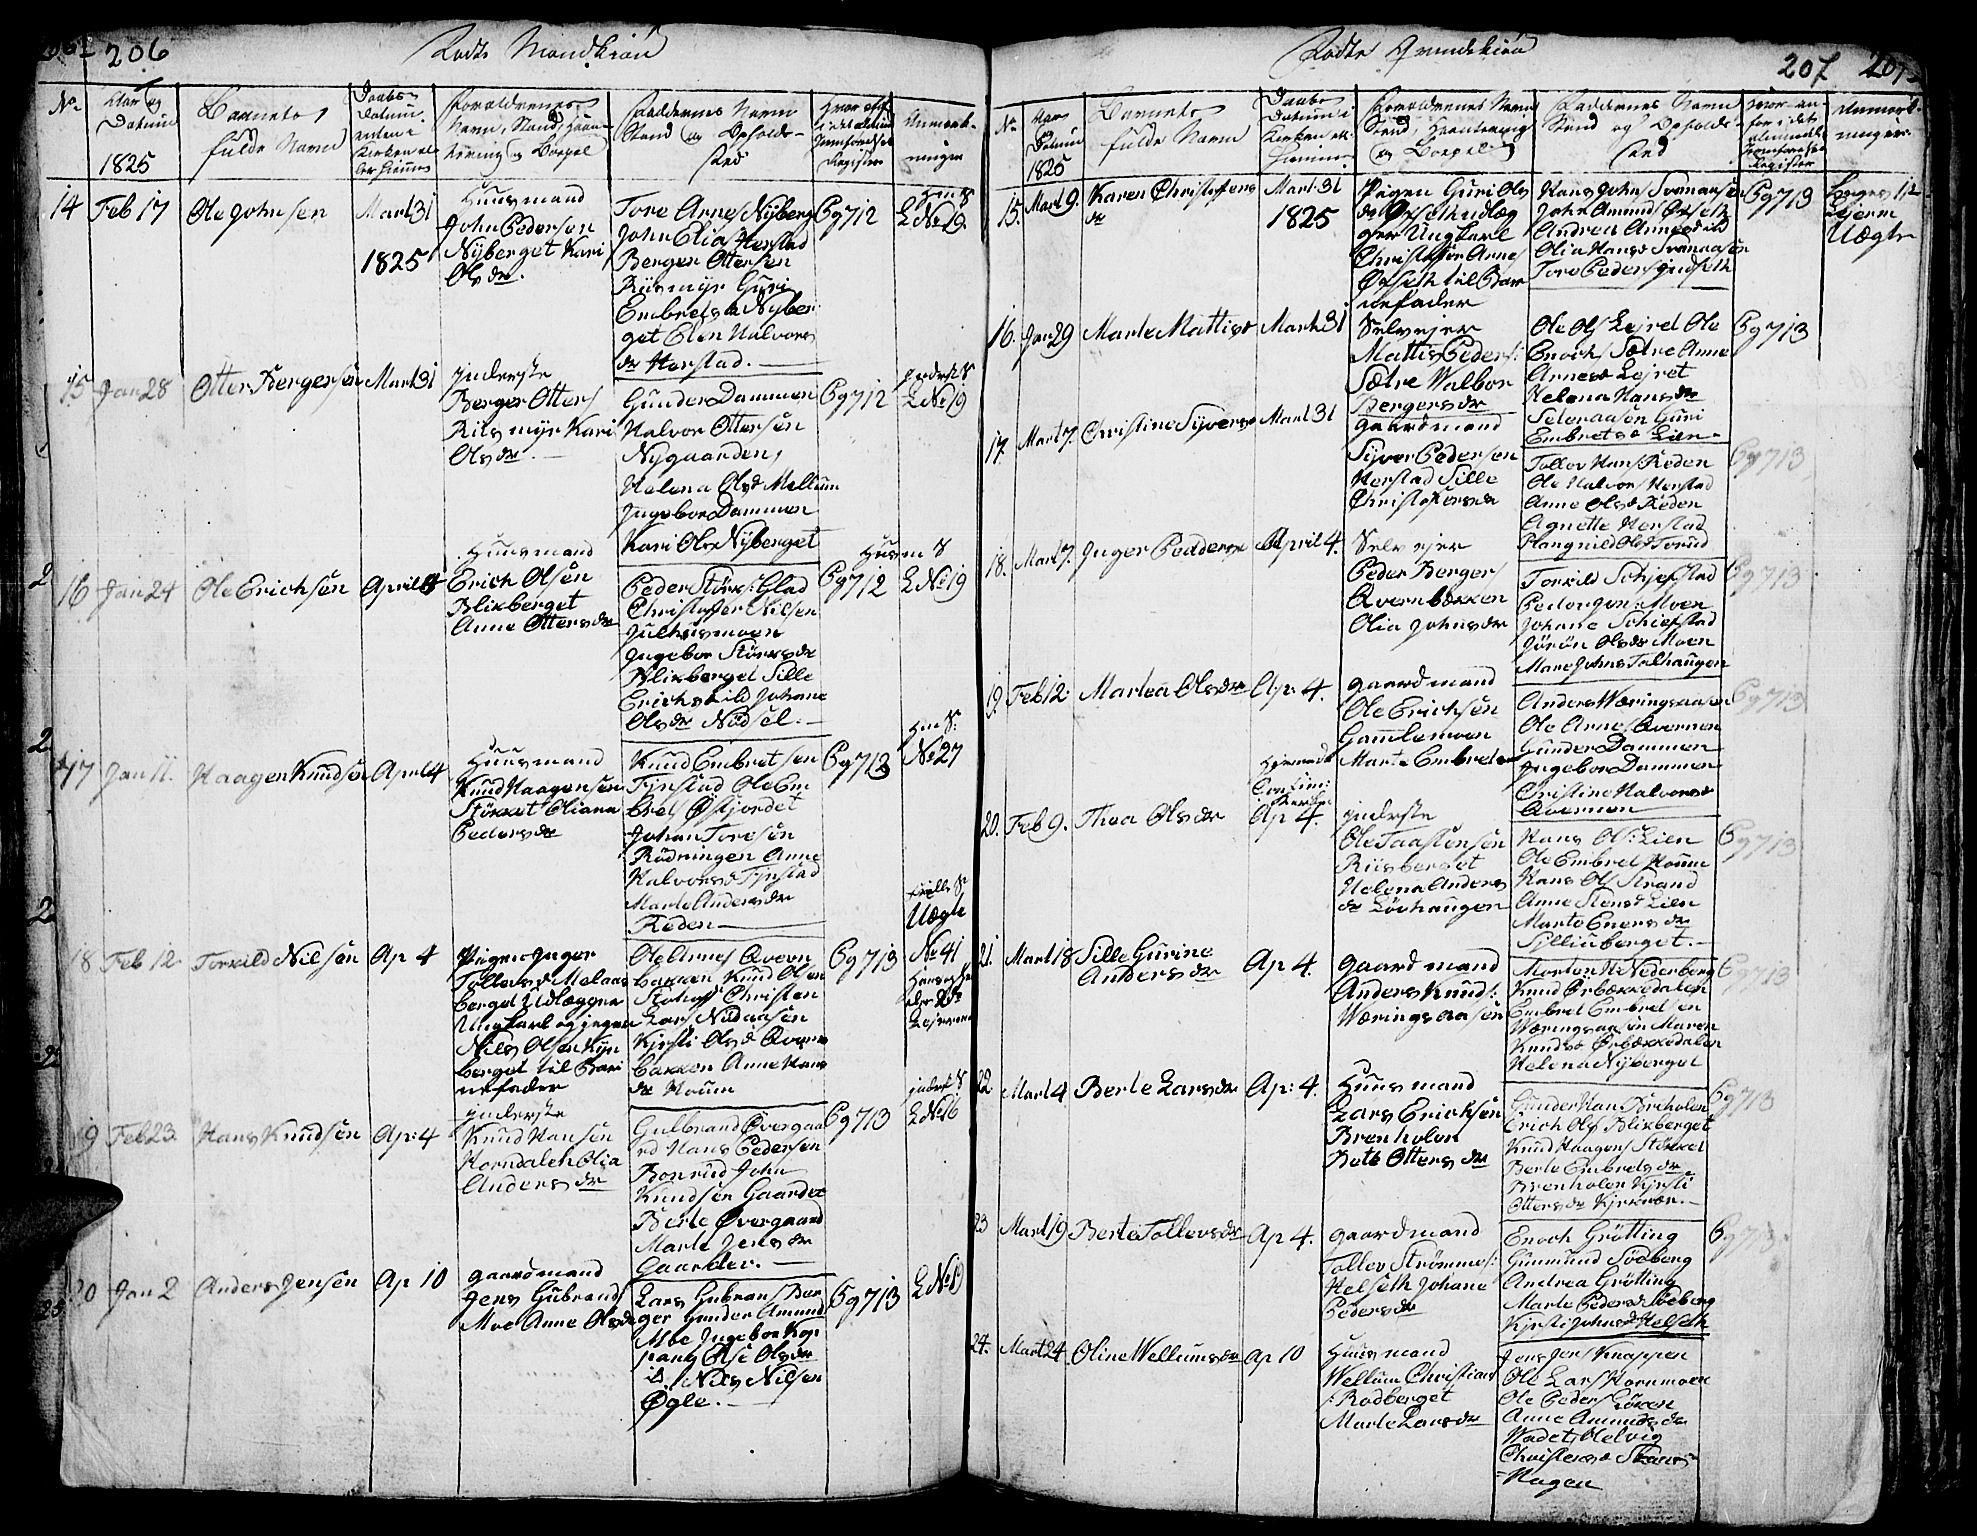 206
Fødte Mandkiøn
No
Aar og
Datum
1825
Barnets
fulde Navn
Daabs
Datum
Forældrenes
Navn, Stand, Haan-
tering og Boepæl
Faddernes Navn
Stand og Opholds-
sted
Register
Anmærk-
ninger
14 Feb 17 Ole Johnsen Mart 31
1825
Huusmand
John Pedersen
Nyberget Kari
Olsdr.
Tore Arnes Nyberg
John Elias Herstad
Berger Ottersen
Riismyr Guri
Embretsd Nyber
get Elen Halvors
dr Herstad.
Pg 712
L No 19.
15 Jan 28 Otter Bergersen Mart 31
Inderste
Berger Otters
Riismyr Kari
Olsdr.
Gunder Dammen
Halvor Ottersen
Nygaarden,
Helena Olsd Mellum
Ingebor Dammen
Kari Olsd Nyberget
Pg 712
L No 19
16 Jan 24 Ole Erichsen April 4
Huusmand
Erich Olsen
Blixberget
Anne Ottersdr
Peder Størks: Glad
Christoffer Nilsen
Julhusmoen
Ingebor Størksdr
Blixberget Sille
Erichsd ild Johane
Olsdr Nødsel.
Pg 712
Huusm S
L No 19
17 Jan 11. Haagen Knudsen April 4
Huusmand
Knud Haagensen
Størket Oliana
Pedersdr
Knud Embretsen
Tynstad Ole Em
bret Østjordet
Johan Toresen
Rødningen Anne
Halvorsd Tynstad
Marte Andersdr
Reden
Pg 713
No 27
18 Feb 12 Torkild Nilsen Ap 4
Pigen Inger
Tollevsd Melaas
berget Udlægger
Ungkarl og jeger
Nils Olsen Kyn
berget til Barn
nefader
Ole Arnes Qvern
bækken Knud Olsen
Christen
Lars Nødaasen
Kjersti Olsd Qvern
bækken Anne Hans
dr Houm
Pg 713
Uægte
No 41
19 Feb 23 Hans Knudsen Ap: 4
Inderste
Knud Hansen
Horndalen Olia
Andersdr
Gulbrand Øvergaa
rd Hans Pedersen
Bonrud John
Knudsen Gaarder
Berte Øvergaard
Marte Jensdr
Gaarder.
Pg 713
L No 16
20 Jan 2 Anders Jensen Ap 10
Gaardmand
Jens Gubrands
Moe Anne Olsdr
Lars Gubrans Ber
ger Gunder Amund
Moe Ingebor Kop
pang Else Olsdr
Nils Nilsen
Øgle.
Pg 713
L No 19
207
Fødte Qvindekiøn
No
Aar
Datum
1825
Barnets
fulde Navn
Daabs
Datum i
Kirken el.
Hiemme
Forældrenes Navn
Stand, Haantering
og Boepæl
Faddernes Navn
Stand og Opholds-
sted
Register
Anmærk-
ninger
15. Mart 9. Karen Christoffers
dr
Mart 31
1825
Pigen Guri Ols
dr Øxseth udlæg
ger Ungkarl
Christoffer Arnes
Øxseth til Bar
nefader
Hans Johns Svenaasen
John Amunds Øxseth
Andrea Arnesd ild
Olia Hansd Svenaasen
Tore Peders Jndseth
Pg 713
Leierm
Uægte
16. Jan 29 Marte Mattisd Mart 31
Selveier
Mattis Peders:
Sætre Walbor
Bergersdr
Ole Ols Lejret Ole
Enochs Sætre Anne
Arnesd Lejret
Helena Hansdr
Selenaasen Guri
Embretsd Lien
Pg 713
17. Mart 7. Christine Syversd Mart 31
Gaardmand
Syver Pedersen
Herstad Sille
Christofersdr
Tollev Hans Reden
Ole Halvors Herstad
Anne Olsd Reden
Agnette Herstad
Rangnild Olsd Torud
Pg 713
18. Mart 7. Inger Pedersdr April 4.
Selveier
Peder Bergers
Qvernbækken
Olia Johnsdr
Torkild Schjefstad
Peder Jons: Moen
Johane Schiefstad
Jørøn Olsdr Moen
Mare Johns Tolhaugen
Pg 713
19. Feb 12: Martea Olsdr Ap: 4.
Gaardmand
Ole Erichsen
Gamlemoen
Marte Embretsdr
Anders Wæringsaasen
Ole Arnes Qvernen
Gunder Dammen
Ingebor Dammen
Christine Halvorsd
Qvernen
Pg 713
20. Feb 9. Thea Olsdr
Hjemmedt
Ap 4.
Inderste
Ole Taastensen
Riisberget
Helena Anders
dr Løvhaugen
Hans Ols: Lien
Ole Embret Houm
Hans Ols Strand
Anne Stensd Lien
Marte Enersdr
Sylliuberget.
Pg 713
21. Mart 18 Sille Gurine
Andersdr
Ap 4.
Gaardmand
Anders Knuds:
Wæringsaasen
Morten H Nederberg
Knud Ørbækkedalen
Embret Embretsen
Wæringsaasen Maren
Knudsd Ørbækkedalen
Helena Nyberget
Pg 713
22 Mart 4 Berte Larsdr Ap: 4
Huusmand
Lars Erichsen
Brenholen
Berte Ottersdr
Gunder Hans Birkholen
Erich Ols Blixberget
Knud Haagens Størket
Berte Embretsdr
Brenholen Kjersti
Ottersdr Kjernær.
Pg 713
23 Mart 19 Berte Tollevsdr Ap 4.
Gaardmand
Tollev Strømmes:
Helseth Johane
Pedersdr
Enoch Grøtting
Gunmund Sødberg
Andrea Grøtting
Marte Pedersd Sødberg
Kjersti Johnsd Helseth
Pg 713
24. Mart 24 Oline Wellumsdr Ap 10
Huusmand
Wellum Christians
: Rodberget
Marte Larsdr
Jens Jens Knappen
Ole Lars Hornmoen
Ole Peders Løken
Anne Amundsdr
Wadet, Helvig
Christensd
Hagen